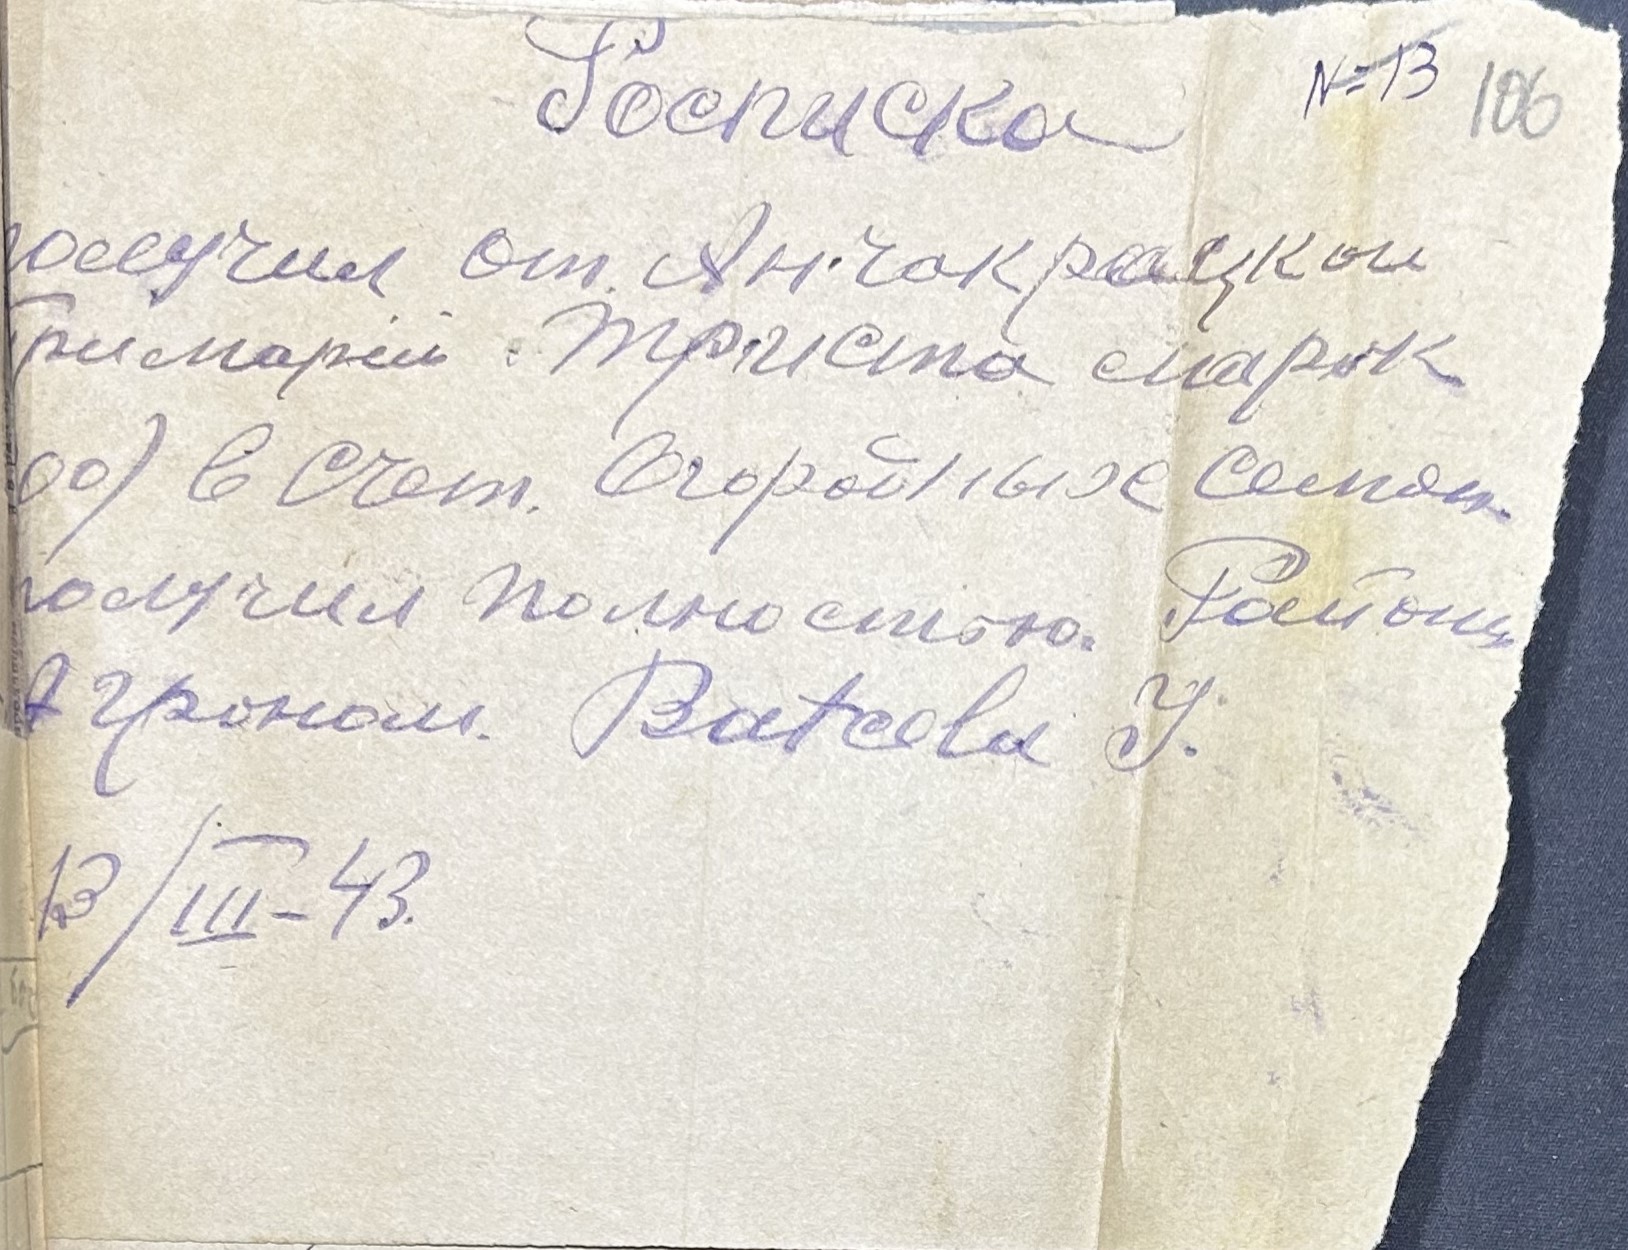 Росписка N=13 106
получил от. Анчакрацкои
Примарііи. Триста марок
00) в Счет. Огородных Семян.
получил полностью. Районц
Агроном. Batcelu У.
13/III-43.